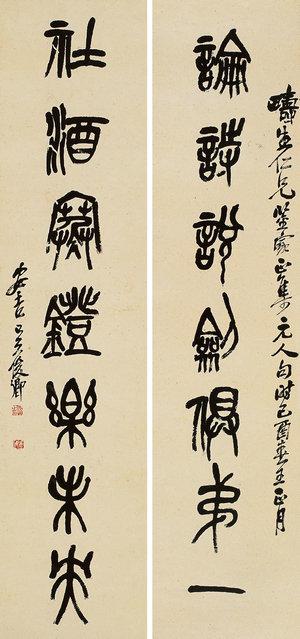 生仁兄鑒家正集元人句時己酉春王正月
論詩說劍俱弟一
社酒篝鐙樂未央
安吉吳俊卿